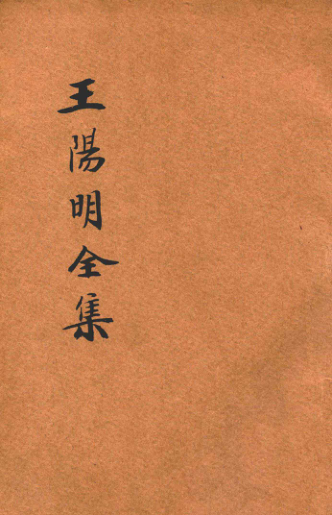 王陽明全集